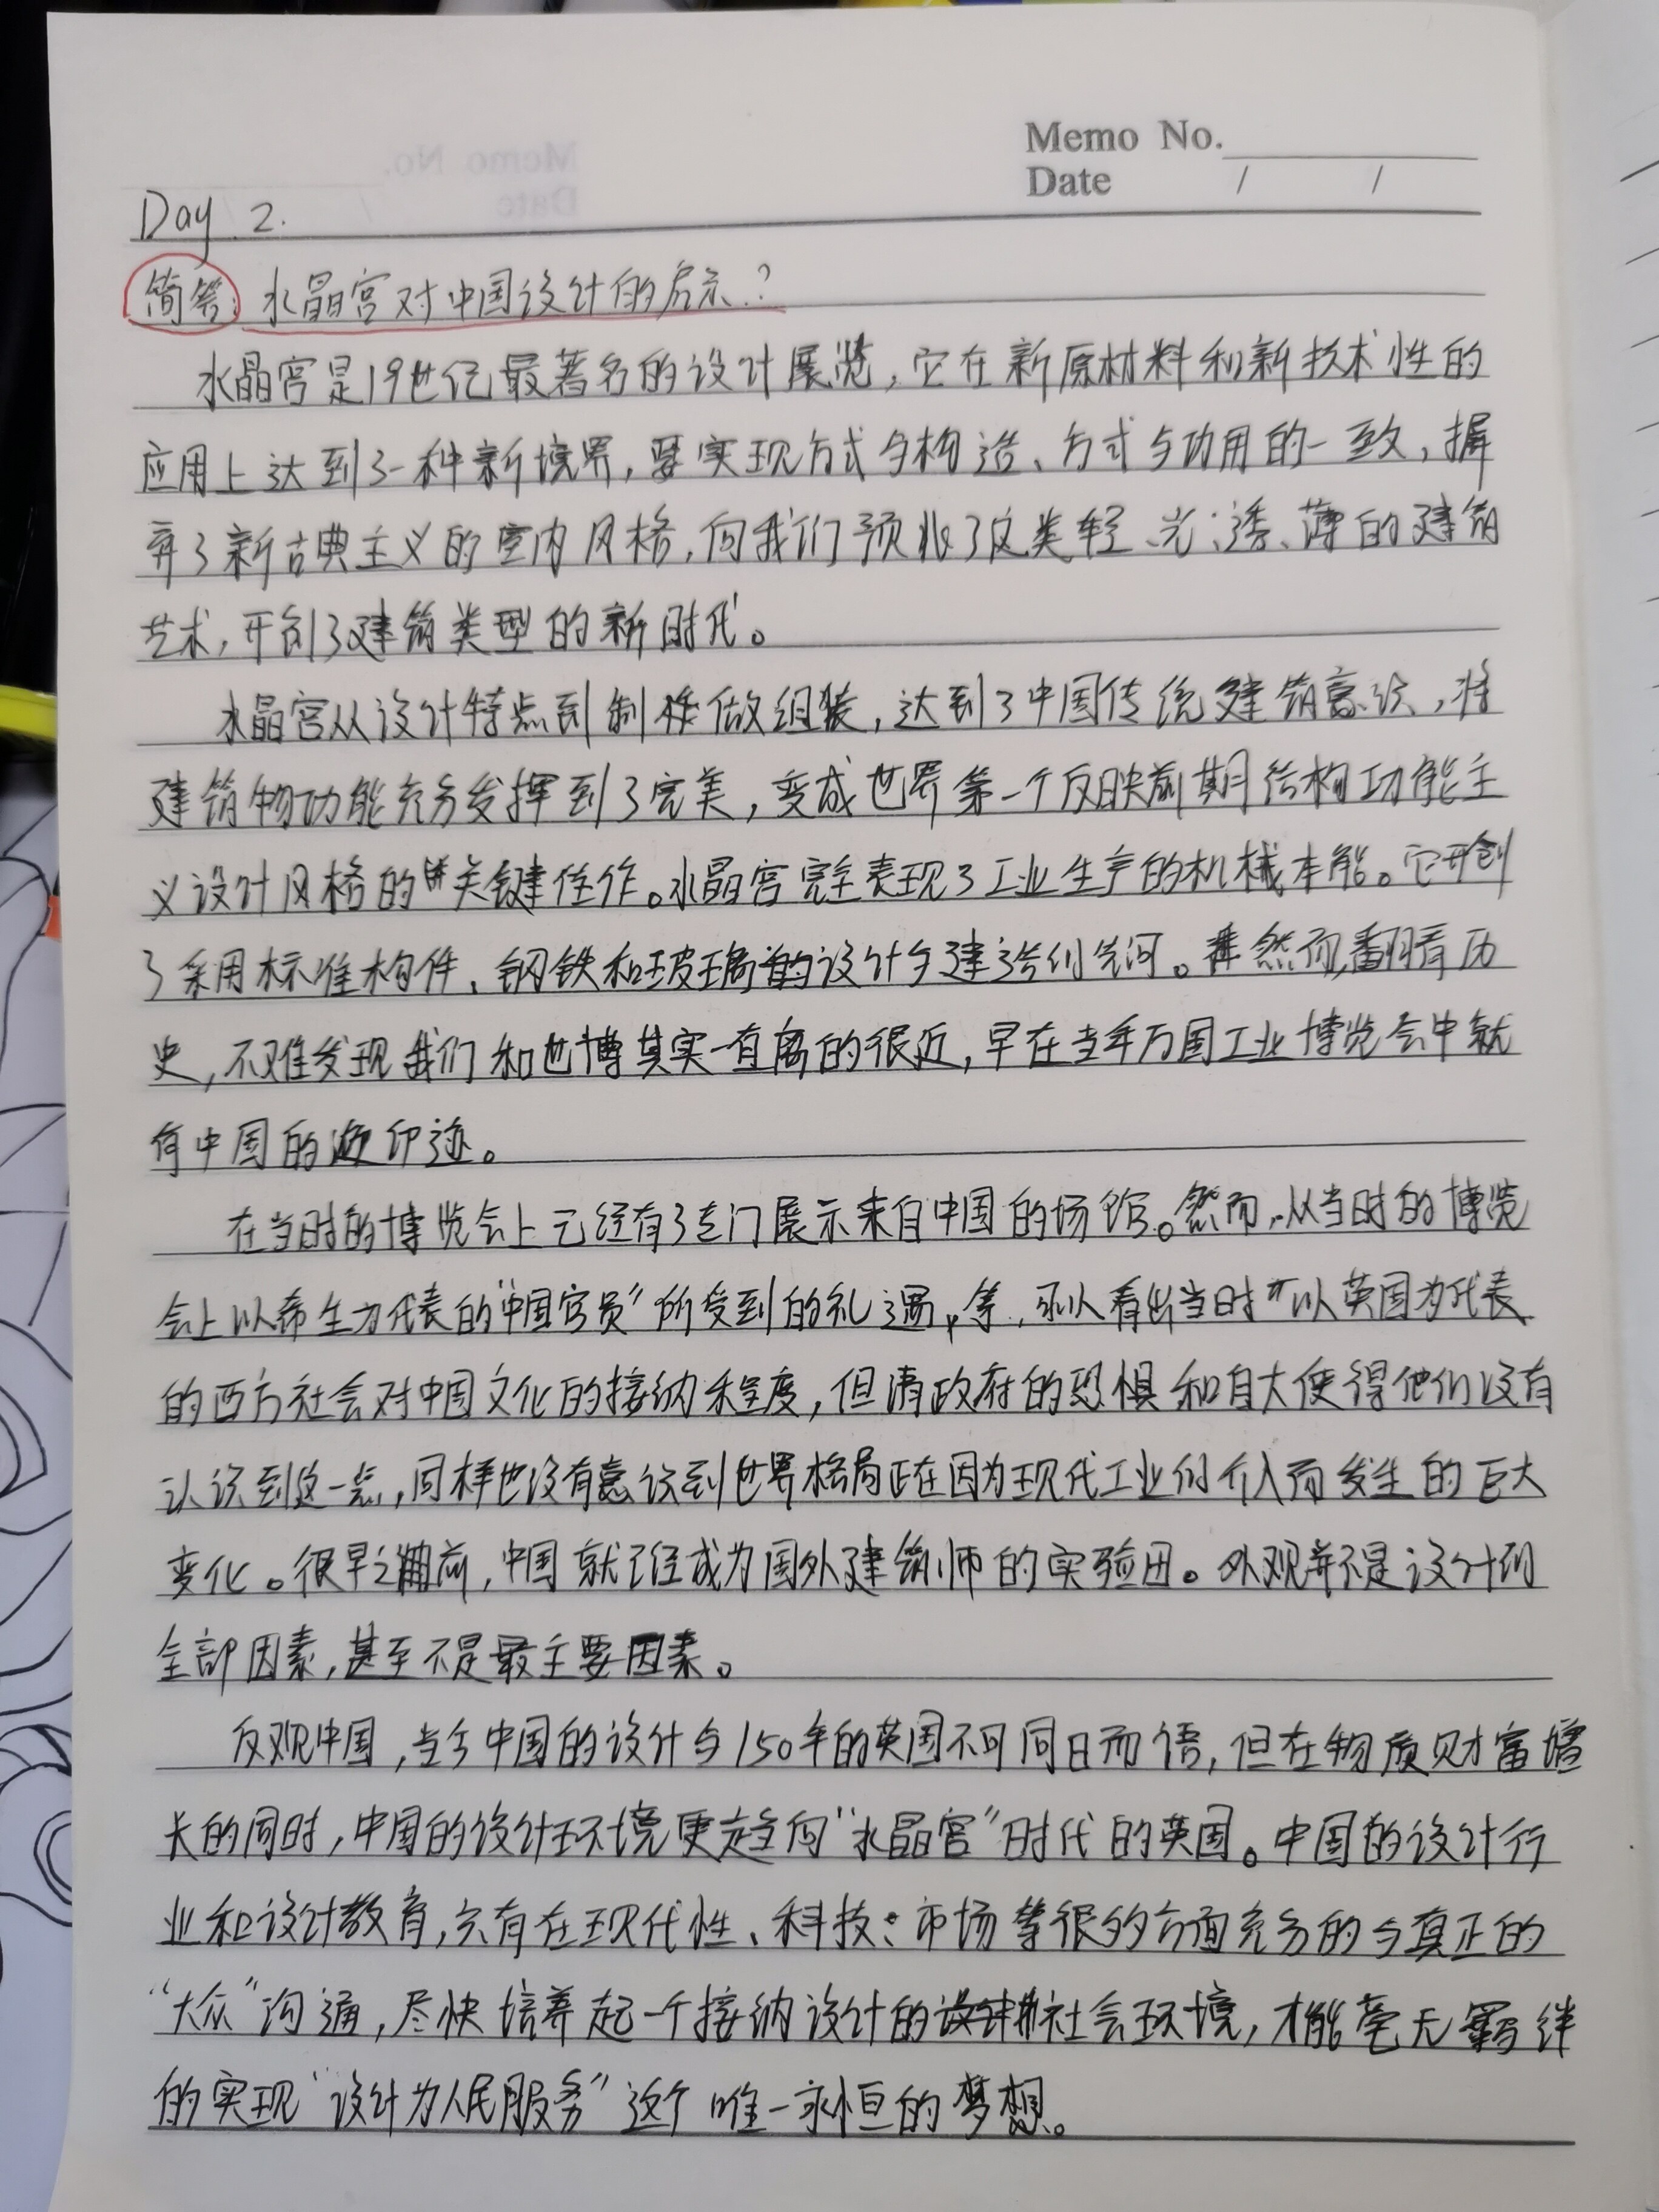 Memo No.
Date / /
Day 2.
简答: 水晶宫对中国设计的启示.?
水晶宫是19世纪最著名的设计展览,它在新原材料和新技术性的
应用上达到了一种新境界,要实现方式与构造、方式与功用的一致,摒
弃了新古典主义的室内风格,向我们预兆了这类轻、光、透、薄的建筑
艺术,开创了建筑类型的新时代。
水晶宫从设计特点到制做组装,达到了中国传统建筑意识,将
建筑物功能充分发挥到了完美,变成世界第一个反映前期结构功能主
义设计风格的关键佳作。水晶宫完全表现了工业生产的机械本能。它开创
了采用标准构件、钢铁和玻璃的设计与建造的先河。然而,翻看历
史,不难发现我们和世博其实一直离的很近,早在当年万国工业博览会中就
有中国的印迹。
在当时的博览会上已经有了专门展示来自中国的场馆。然而,从当时的博览
会上以希生为代表的“中国官员”所受到的礼遇,等,可以看出当时以英国为代表
的西方社会对中国文化的接纳程度,但清政府的恐惧和自大使得他们没有
认识到这一点,同样也没有意识到世界格局正在因为现代工业的介入而发生的巨大
变化。很早之前,中国就已经成为国外建筑师的实验田。外观并不是设计的
全部因素,甚至不是最主要因素。
反观中国,当今中国的设计与150年的英国不可同日而语,但在物质财富增
长的同时,中国的设计环境更趋向“水晶宫”时代的英国。中国的设计行
业和设计教育,只有在现代性、科技、市场等很多方面充分的与真正的
“大众”沟通,尽快培养起一个接纳设计的社会环境,才能毫无羁绊
的实现“设计为人民服务”这个唯一永恒的梦想。